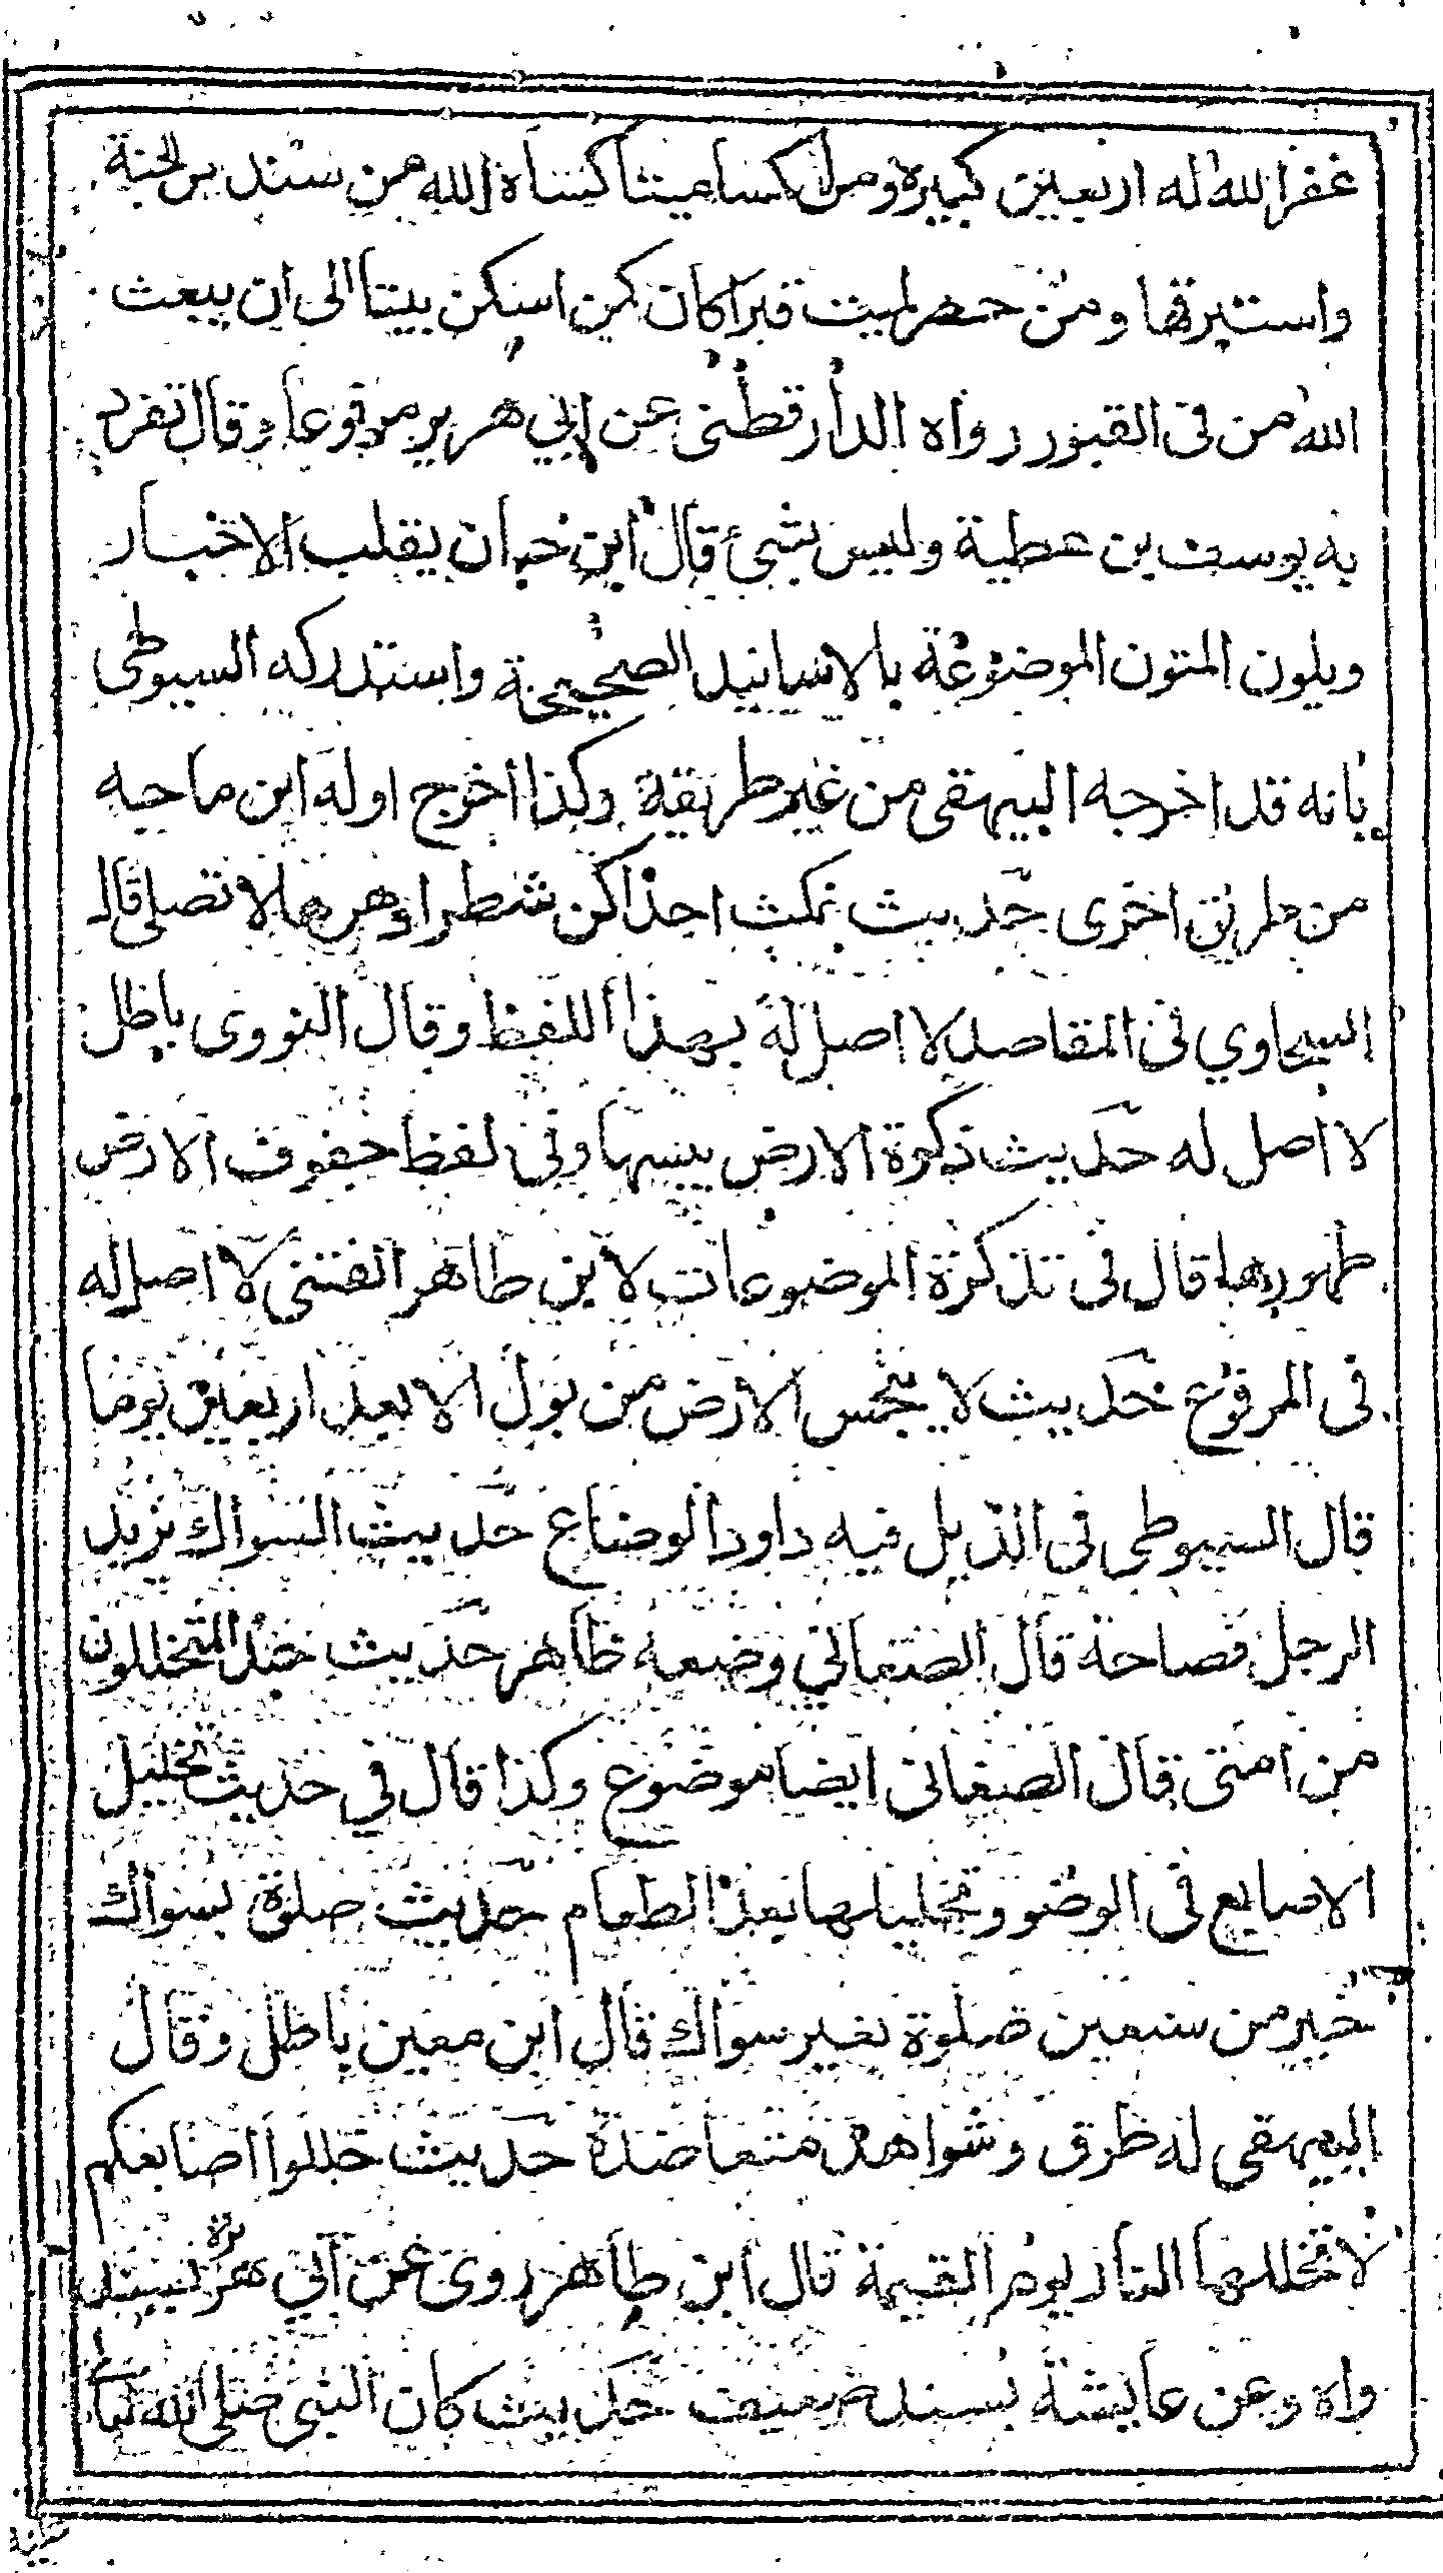 غفر الله له اربعين كبيرة ومن كسا ميتا كساه الله من سندس الجنة
واستبرقها ومن حضر لميت قبرا كان كمن اسكن بيتا الى ان يبعث
الله من فى القبور رواه الدارقطنى عن ابي هرير مرفوعا وقال تفرد
به يوسف بن عطية وليس بشئ قال ابن حبان يقلب الاخبار
ويلون المتون الموضوعة بالاسانيد الصحيحة واستدركه السيوطى
بانه قد اخرجه البيهقى من غير طريقة وكذا اخرج اوله ابن ماجه
من طريق اخرى حديث تمكث احداكن شطر اوهرها لا تصلى قال
السخاوي فى المقاصد لا اصل له بهذا اللفظ وقال النووى باطل
لا اصل له حديث ذكوة الارض يبسها وفى لفظ جفوف الارض
طهورها قال فى تذكرة الموضوعات لابن طاهر الفتنى لا اصل له
فى المرفوع حديث لا ينجس الارض من بول الا بعد اربعين يوما
قال السيوطى فى الذيل فيه داود الوضاع حديث السواك يزيد
الرجل فصاحة قال الصنعاني وضعه ظاهر حديث حبذ المتخللون
من امتى قال الصنعانى ايضا موضوع وكذا قال في حديث تخليل
الاصابع فى الوضو وتخليلها بعد الطعام حديث صلوة بسواك
خير من سبعين صلوة بغير سواك قال ابن معين باطل وقال
البيهقى له طرق وشواهد متعاضدة حديث خللوا اصابعكم
لا تخللها النار يوم القيمة قال ابن طاهر روى عن ابي هريرة بسند
واه وعن عايشة بسند ضعيف حديث كان النبى صلى الله